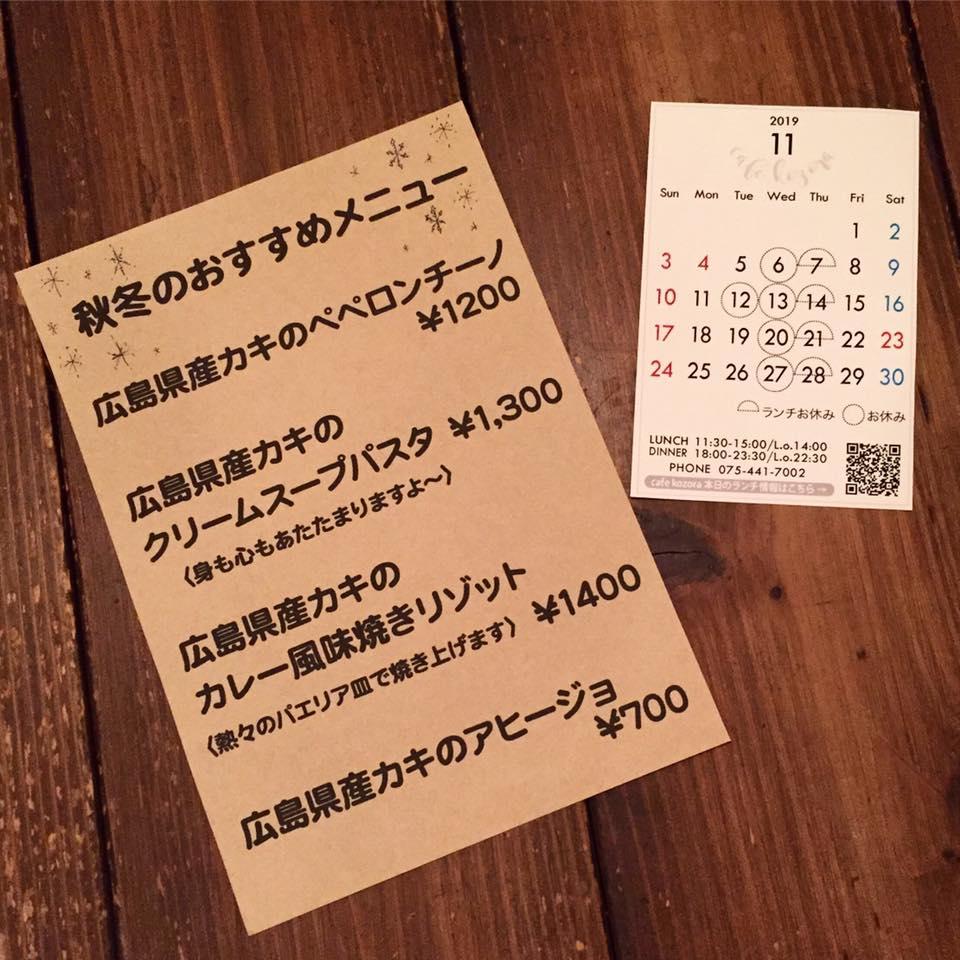 秋冬のおすすめメニュー
広島県産カキのペペロンチーノ
¥1200
広島県産カキの
クリームスープパスタ ¥1,300
〈身も心もあたたまりますよ〜〉
広島県産カキの
カレー風味焼きリゾット
¥1400
〈熱々のパエリア皿で焼き上げます〉
広島県産カキのアヒージョ
¥700
2019
11
cafe kozora
Sun Mon Tue Wed Thu Fri Sat
1 2
3 4 5 6 7 8 9
10 11 12 13 14 15 16
17 18 19 20 21 22 23
24 25 26 27 28 29 30
ランチお休み お休み
LUNCH 11:30-15:00/L.o.14:00
DINNER 18:00-23:30/L.o.22:30
PHONE 075-441-7002
cafe kozora 本日のランチ情報はこちら→